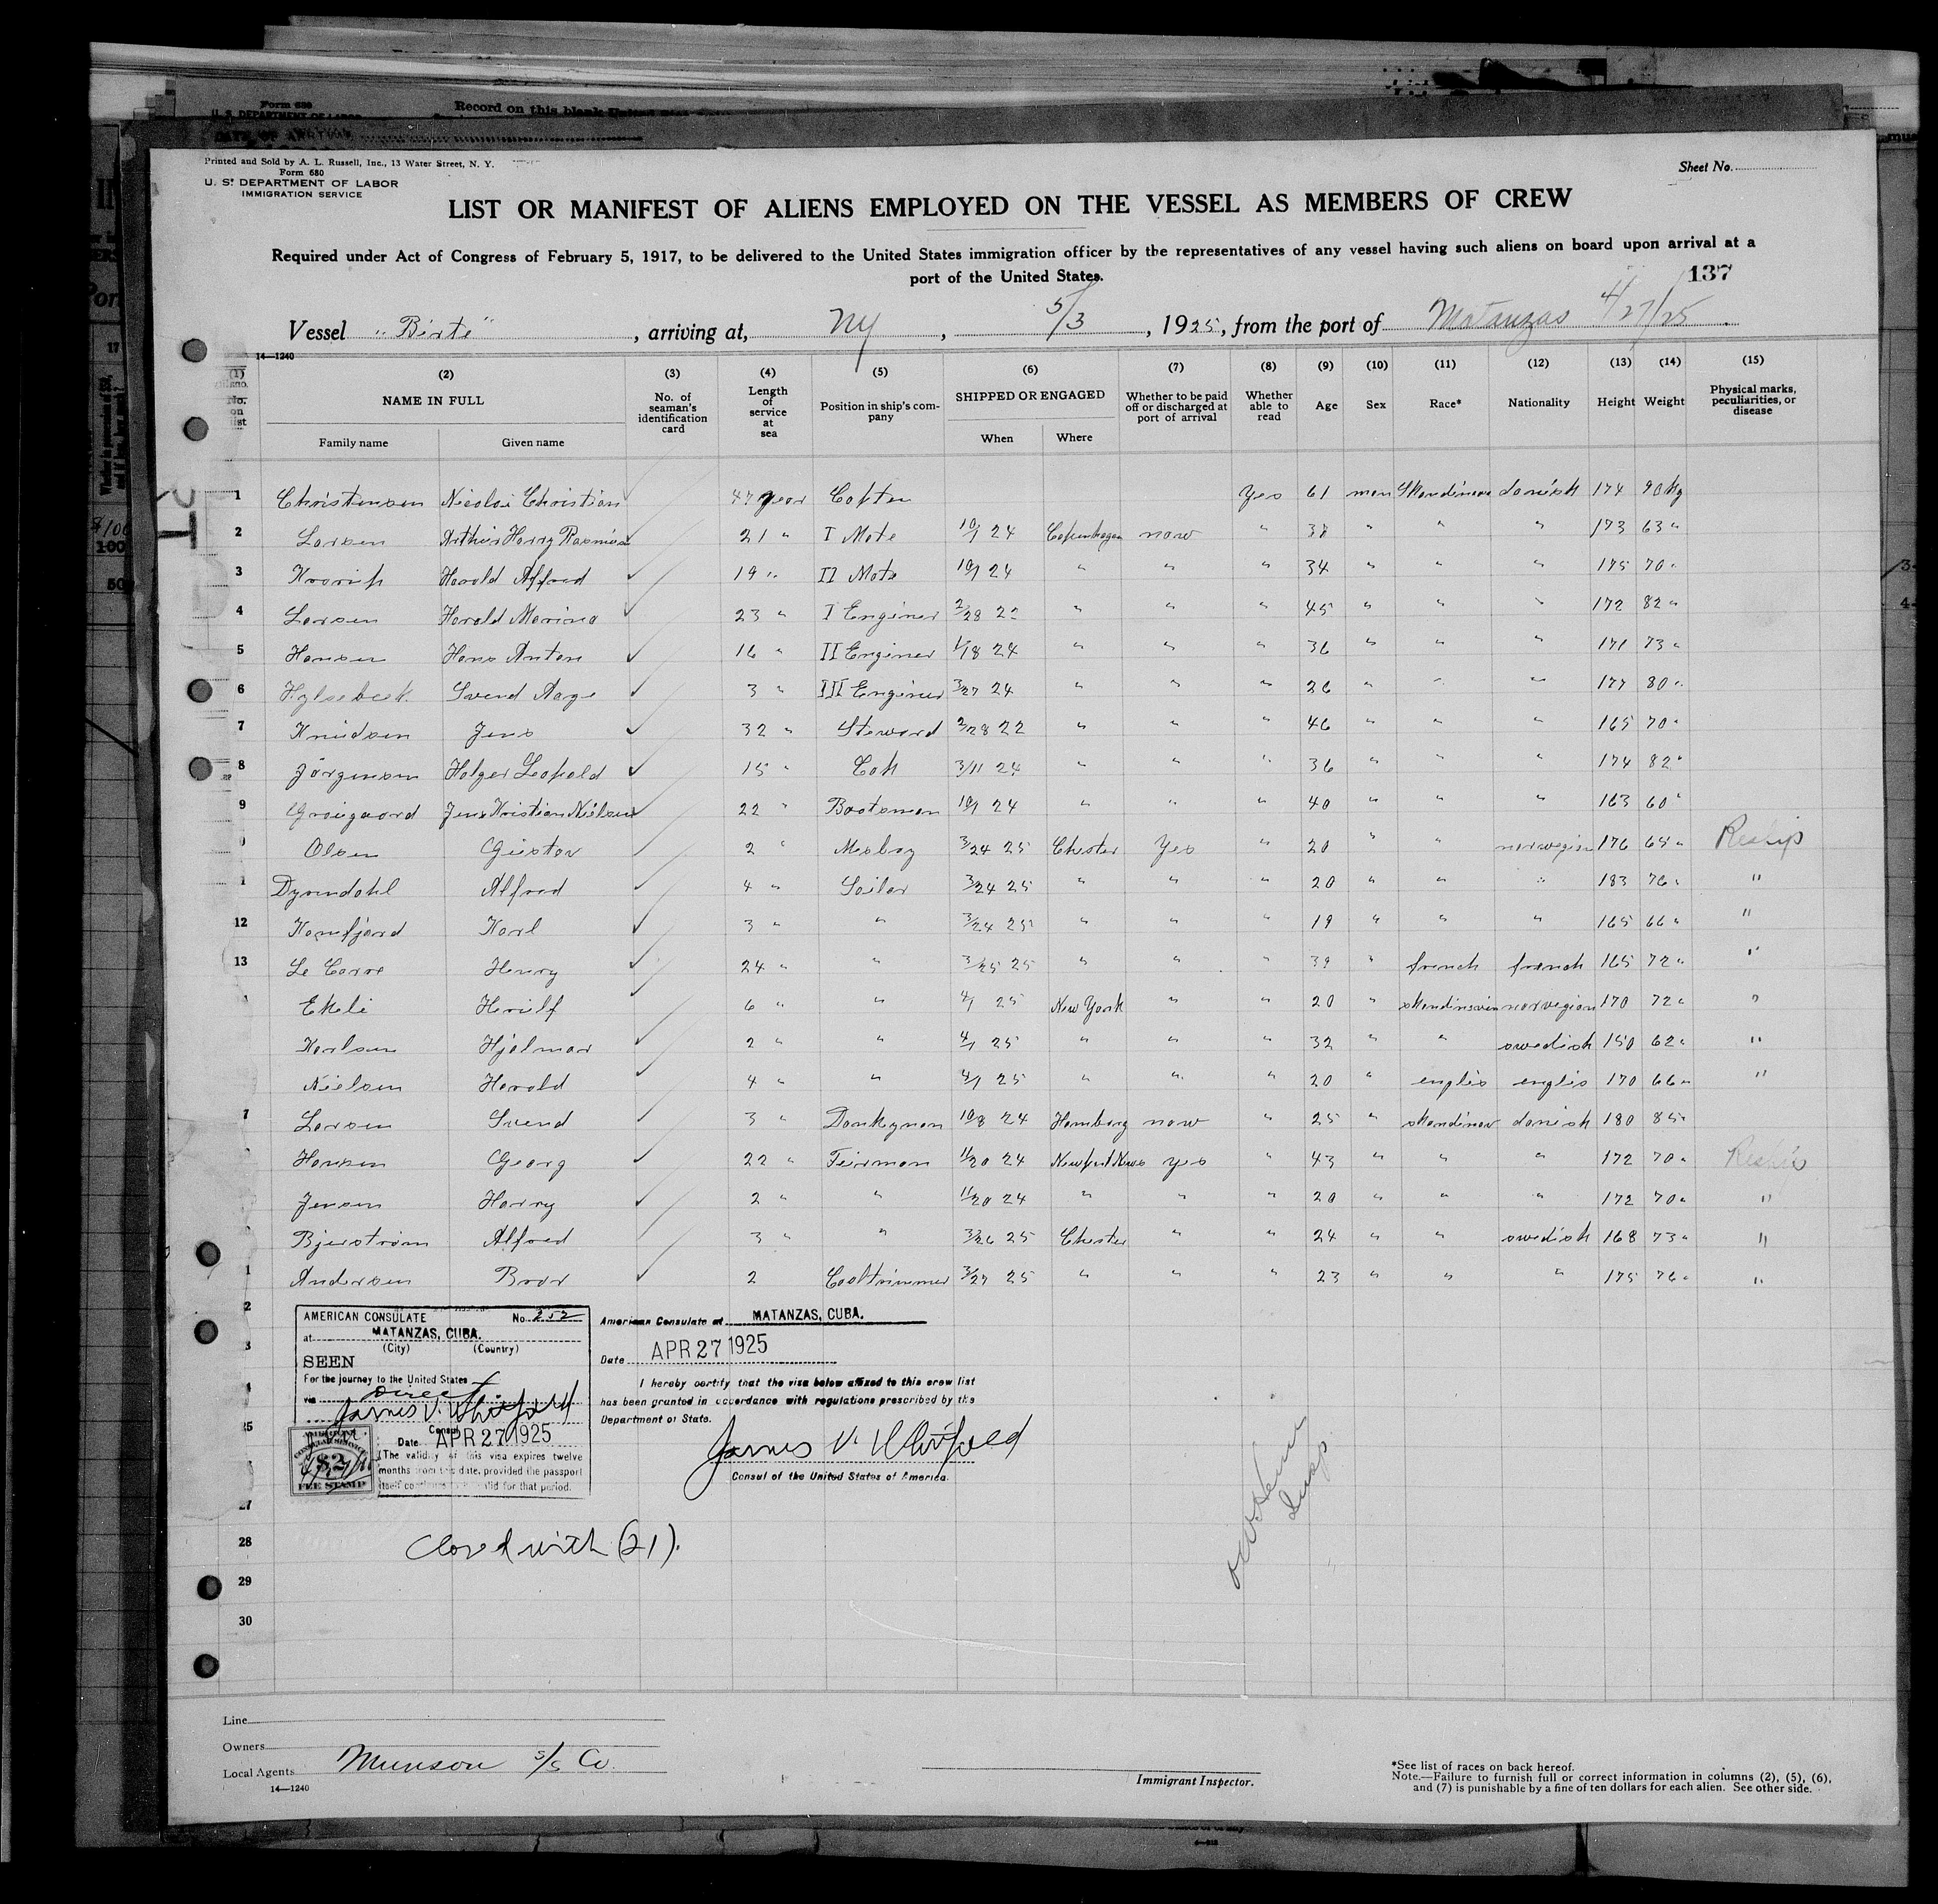 Form 680
U. S. DEPARTMENT OF LABOR
Record on this blank
Printed and Sold by A. L. Russell, Inc., 13 Water Street, N. Y.
Form 680
U. S. DEPARTMENT OF LABOR
IMMIGRATION SERVICE
Sheet No.
LIST OR MANIFEST OF ALIENS EMPLOYED ON THE VESSEL AS MEMBERS OF CREW
Required under Act of Congress of February 5, 1917, to be delivered to the United States immigration officer by the representatives of any vessel having such aliens on board upon arrival at a
port of the United States.
137
Vessel "Birte", arriving at, NY, 5/3, 1925, from the port of Matanzas 4/27/25
14—1240
(1) (2) (3) (4) (5) (6) (7) (8) (9) (10) (11) (12) (13) (14) (15)
No. on list
NAME IN FULL
Family name Given name
No. of seaman's identification card
Length of service at sea
Position in ship's company
SHIPPED OR ENGAGED
When Where
Whether to be paid off or discharged at port of arrival
Whether able to read
Age
Sex
Race*
Nationality
Height
Weight
Physical marks, peculiarities, or disease
1 Christensen Nicolai Christian 47 year Coften Yes 61 man Skandinav danish 174 90 kg
2 Larsen Arthur Harry Rasmus 21 " I Mate 10/1 24 Copenhagen now " 38 " " " 173 63 "
3 Harald Alfred 19 " II Mate 10/1 24 " " " 34 " " " 175 70 "
4 Larsen Harald Marino 23 " I Enginer 2/28 22 " " " 45 " " " 172 82 "
5 Hansen Hans Anton 16 " II Enginer 1/18 24 " " " 36 " " " 171 73 "
6 Hylsebeck Svend Aage 3 " III Enginer 3/27 24 " " " 26 " " " 177 80 "
7 Knudsen Jens 32 " Steward 2/28 22 " " " 46 " " " 165 70 "
8 Jörgensen Holger Leopold 15 " Cok 3/11 24 " " " 36 " " " 174 82 "
9 Graugaard Jens Kristian Nielsen 22 " Bootsman 10/1 24 " " " 40 " " " 163 60 "
Olsen Gustav 2 " Mesboy 3/24 25 Chester Yes " 20 " " norwegian 176 65 " Reship
1 Dyrendahl Alfred 4 " Sailar 3/24 25 " " " 20 " " " 183 76 " "
12 Karl 3 " " 3/24 25 " " " 19 " " " 165 66 " "
13 Le Carre Henry 24 " " 3/25 25 " " " 39 " french french 165 72 " "
Ekeli Herulf 6 " " 4/1 25 New York " " 20 " skandinavian norwegian 170 72 " "
Karlsen Hjalmar 2 " " 4/1 25 " " " 32 " " swedish 150 62 " "
Nielsen Harold 4 " " 4/1 25 " " " 20 " englis englis 170 66 " "
7 Larsen Svend 3 " Donkyman 10/8 24 Hamborg now " 25 " skandinav danish 180 85 "
Hansen Georg 22 " Feirman 11/20 24 Newport News yes " 43 " " " 172 70 " Reship
Jensen Harry 2 " " 11/20 24 " " " 20 " " " 172 70 " "
Bjurström Alfred 3 " " 3/26 25 Chester " " 24 " " swedish 168 73 " "
1 Andersen Bror 2 Coaltrimmer 3/27 25 " " " 23 " " " 175 76 " "
2
AMERICAN CONSULATE No. 252
at MATANZAS, CUBA.
(City) (Country)
SEEN
For the journey to the United States
via Direct
James V. Whitfield
Consul
Date APR 27 1925
(The validity of this visa expires twelve
months from this date, provided the passport
itself continues to be valid for that period.
$2
FEE STAMP
American Consulate at MATANZAS, CUBA.
Date APR 27 1925
I hereby certify that the visa below affixed to this crew list
has been granted in accordance with regulations prescribed by the
Department of State.
James V. Whitfield
Consul of the United States of America.
3
25
27
28
29
30
Closed with (21).
Insp
Line
Owners
Local Agents Munson S/S Co.
14—1240
Immigrant Inspector.
*See list of races on back hereof.
Note.—Failure to furnish full or correct information in columns (2), (5), (6),
and (7) is punishable by a fine of ten dollars for each alien. See other side.